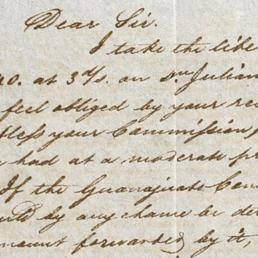 Dear Sir.
I take the libe
at 3d/s. on Sn. Julian
feel obliged by your re
your Commission,
had at a moderate p
If the Guanajuato Con
by any chance be de
mount forwarded by it,